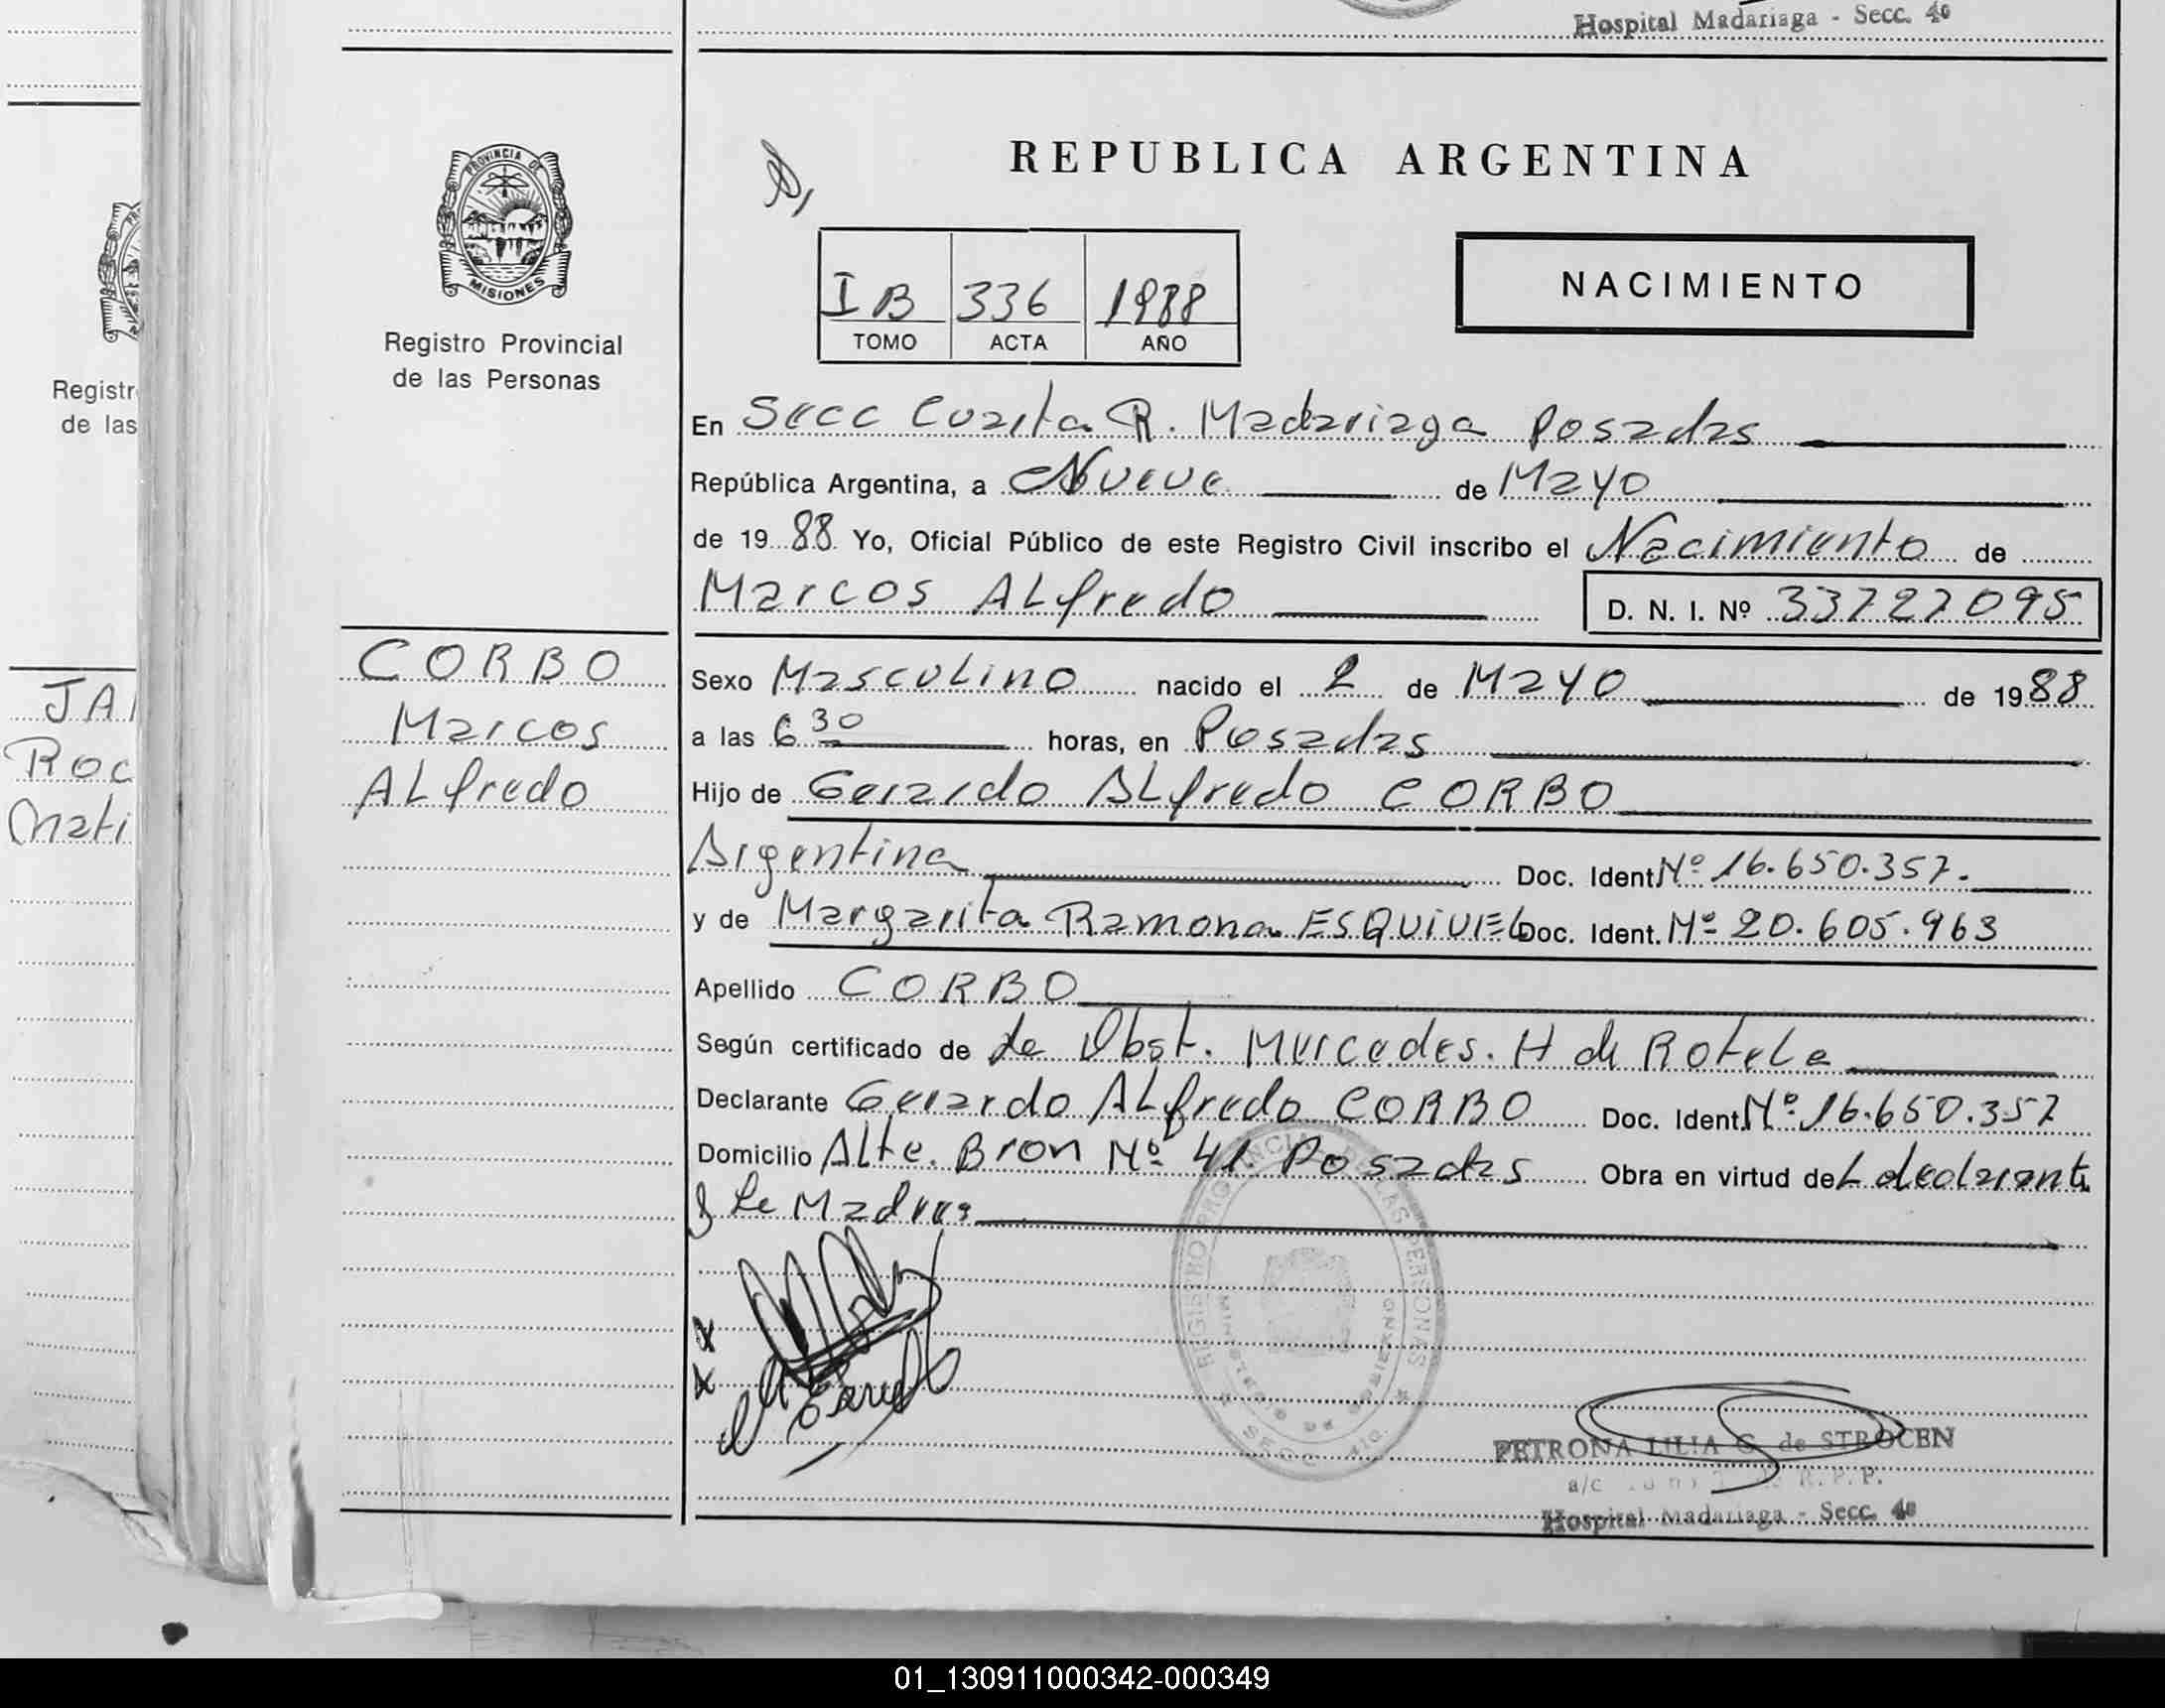 Hospital Madariaga - Secc. 4º
PROVINCIA DE
MISIONES
Registro Provincial
de las Personas
REPUBLICA ARGENTINA
I B 336 1988
TOMO ACTA AÑO
NACIMIENTO
En Secc Cuarta R. Madariaga Posadas
República Argentina, a Nueve de Mayo
de 1988 Yo, Oficial Público de este Registro Civil inscribo el Nacimiento de
Marcos ALfredo D. N. I. Nº 33727095
CORBO
Marcos
ALfredo
Sexo MascuLino nacido el 2 de MAYO de 1988
a las 6 30 horas, en Posadas
Hijo de Gerardo ALfredo CORBO
Argentina Doc. Ident. Nº 16.650.357.
y de Margarita Ramona ESQUIVEL Doc. Ident. Nº 20.605.963
Apellido CORBO
Según certificado de La Obst. Mercedes. H de RoteLa
Declarante Gerardo ALfredo CORBO Doc. Ident. Nº 16.650.357
Domicilio ALte. Bron Nº 41. Posadas Obra en virtud de L declarante
y La Madre
REGISTRO PROVINCIAL DE LAS PERSONAS
MINISTERIO DE GOBIERNO
PETRONA LILIA G. de STROCEN
a/c R. P. P.
Hospital Madariaga - Secc. 4º
Registr
de las
JA
Roc
Mati
01_130911000342-000349